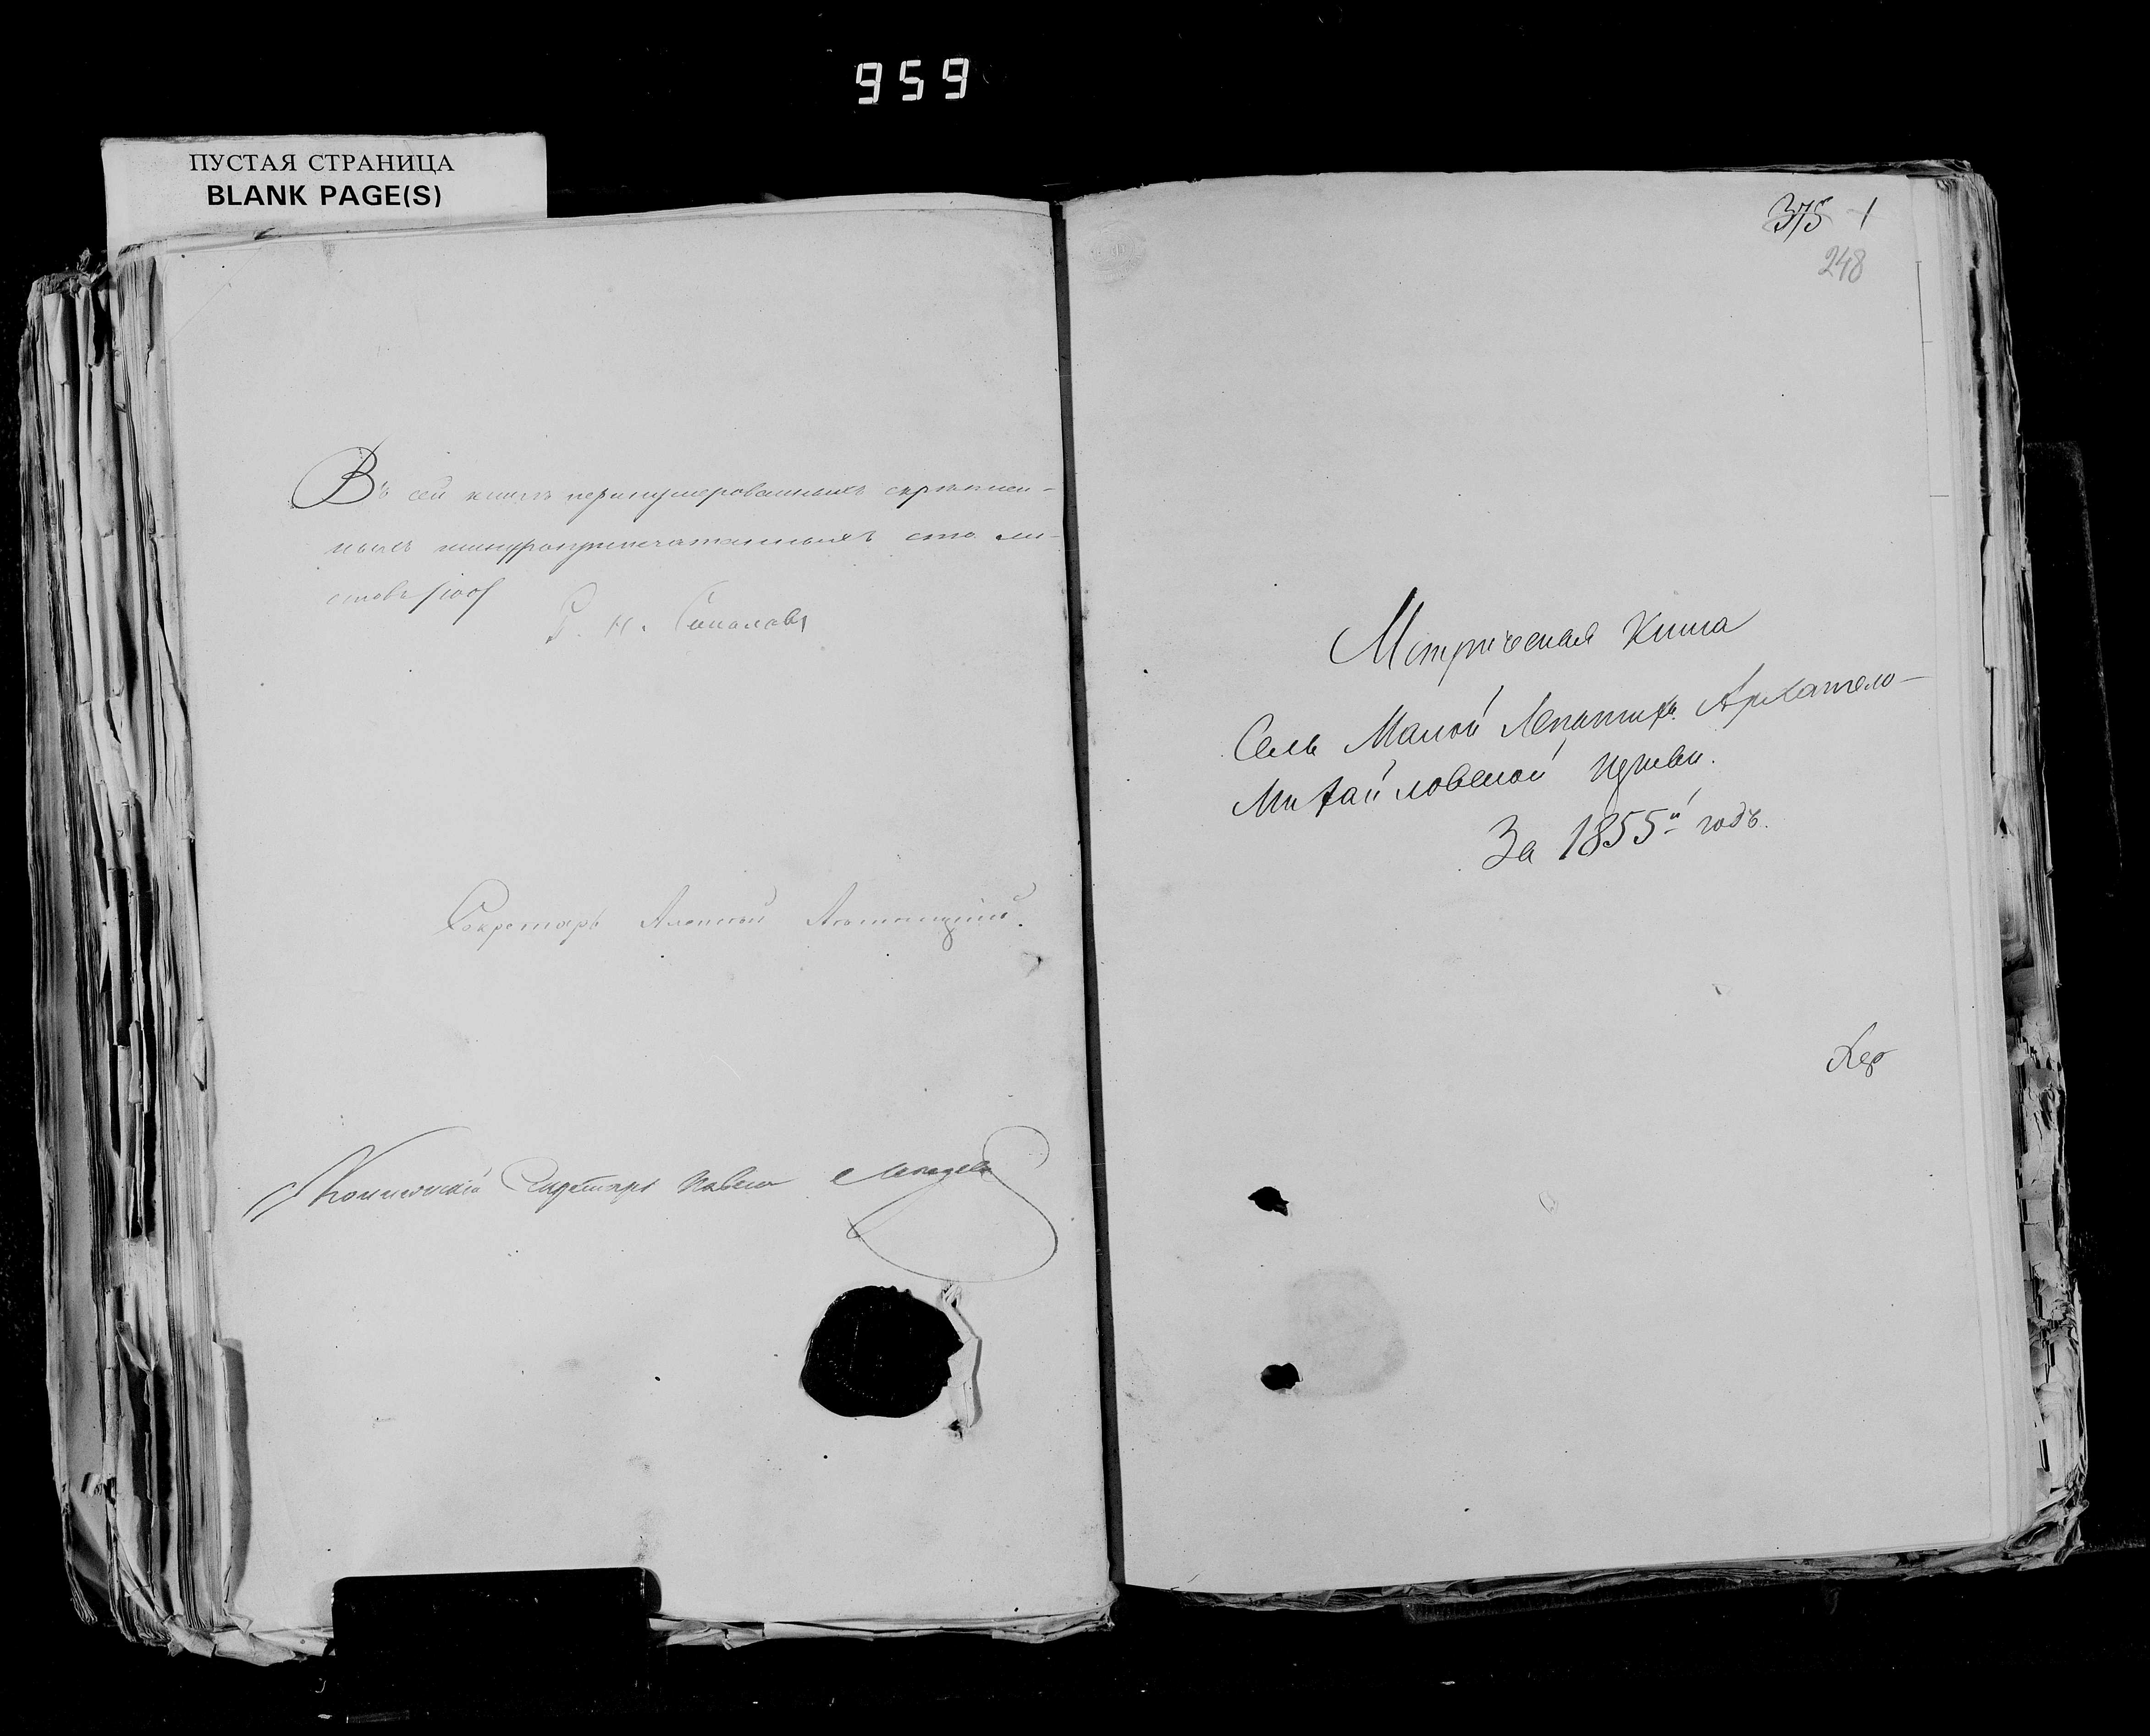 959
ПУСТАЯ СТРАНИЦА
BLANK PAGE(S)
Въ сей книгѣ перенумерованныхъ скрѣплен-
ныхъ шнуроприпечатанныхъ сто ли-
стовъ /100/
Соколовъ
Секретарь Алексей
Секретарь Павелъ
375 1
248
Метрическая Книга
Села Малой Лепатихи Архангело-
Михайловской церкви.
За 1855й годъ.
Хер